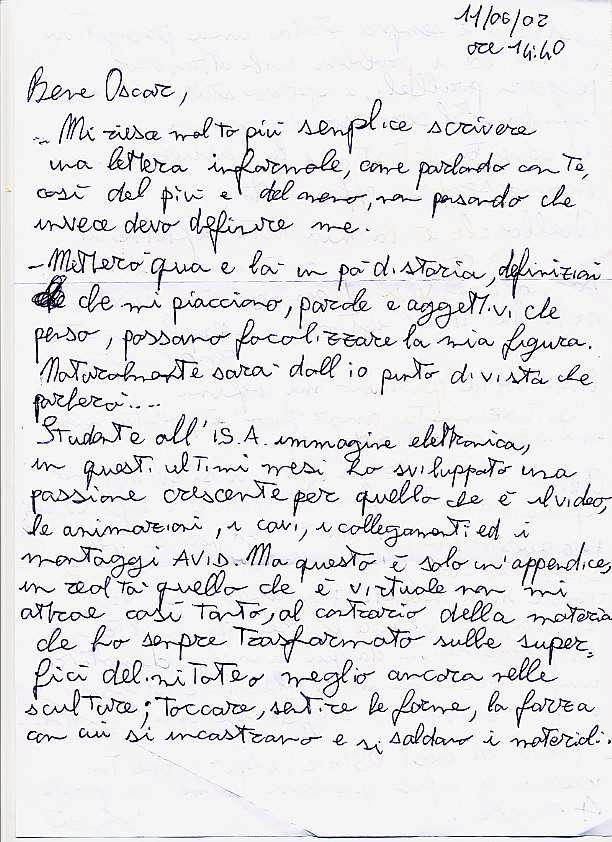 11/06/02
ore 14:40
Bene Oscar,
... Mi riesce molto più semplice scrivere
una lettera informale, come parlando con te,
così del più e del meno, non pensando che
invece devo definire me.
- Metterò qua e là un pò di storia, definizioni
che mi piacciono, parole e aggettivi che
penso, possano focalizzare la mia figura.
Naturalmente sarà dall'io punto di vista che
parlerò....
Studente all'I.S.A. immagine elettronica,
in questi ultimi mesi ho sviluppato una
passione crescente per quello che è il video,
le animazioni, i cavi, i collegamenti ed i
montaggi AVID. Ma questo è solo un'appendice,
in realtà quello che è virtuale non mi
attrae così tanto, al contrario della materia
che ho sempre trasformato sulle super=
fici delimitate o meglio ancora nelle
sculture; toccare, sentire le forme, la forza
con cui si incastrano e si saldano i materiali.